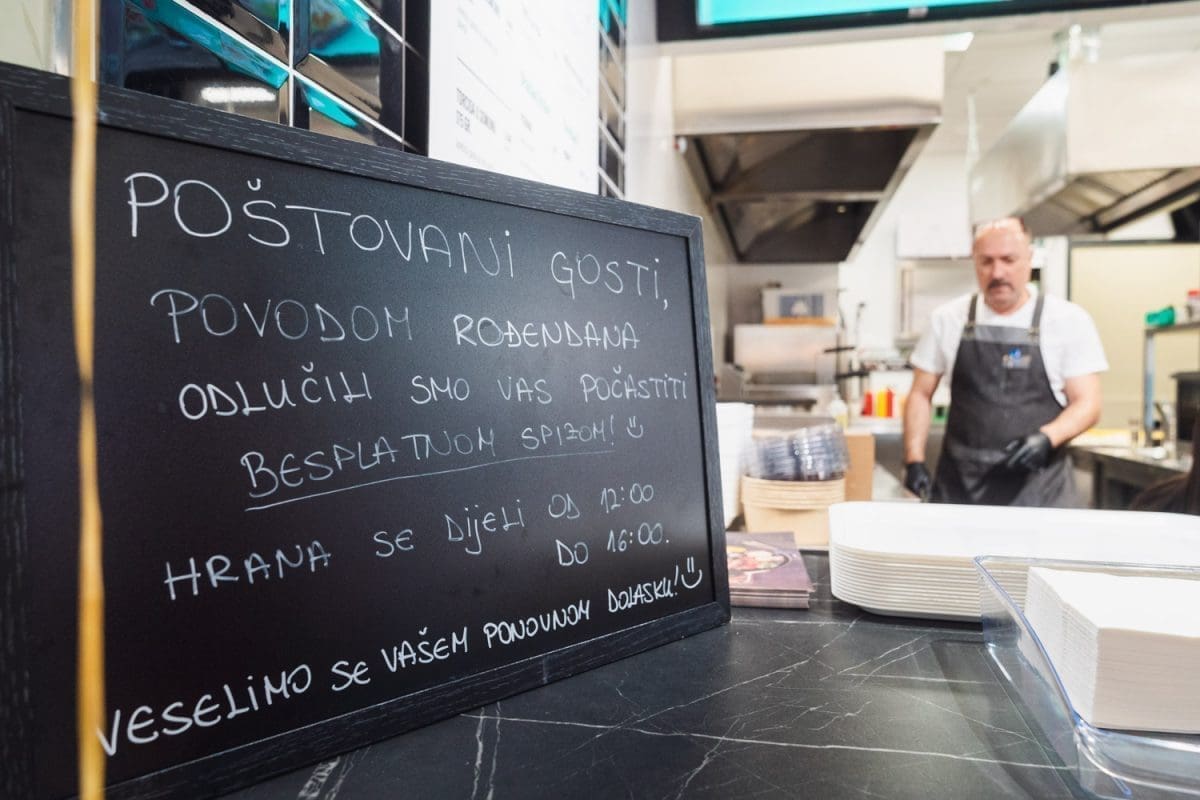 POŠTOVANI GOSTI,
POVODOM ROĐENDANA
ODLUČILI SMO VAS POČASTITI
BESPLATNOM SPIZOM!
HRANA SE DIJELI OD 12:00
DO 16:00.
VESELIMO SE VAŠEM PONOVNOM DOLASKU!